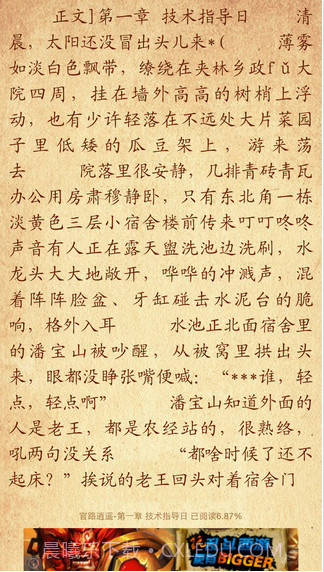 正文]第一章 技术指导日 清
晨，太阳还没冒出头儿来*( 薄雾
如淡白色飘带，缭绕在夹林乡政fǔ大
院四周，挂在墙外高高的树梢上浮
动，也有少许轻落在不远处大片菜园
子里低矮的瓜豆架上，游来荡
去 院落里很安静，几排青砖青瓦
办公用房肃穆静卧，只有东北角一栋
淡黄色三层小宿舍楼前传来叮叮咚咚
声音有人正在露天盥洗池边洗刷，水
龙头大大地敞开，哗哗的冲溅声，混
着阵阵脸盆、牙缸碰去水泥台的脆
响，格外入耳 水池正北面宿舍里
的潘宝山被吵醒，从被窝里拱出头
来，眼都没睁张嘴便喊：“***谁，轻
点，轻点啊” 潘宝山知道外面的
人是老王，都是农经站的，很熟络，
吼两句没关系 “都啥时候了还不
起床？”挨说的老王回头对着宿舍门
官路逍遥-第一章 技术指导日 已阅读6.87%
BIGGER
晨曦乐下载·CXLEDJ.COM